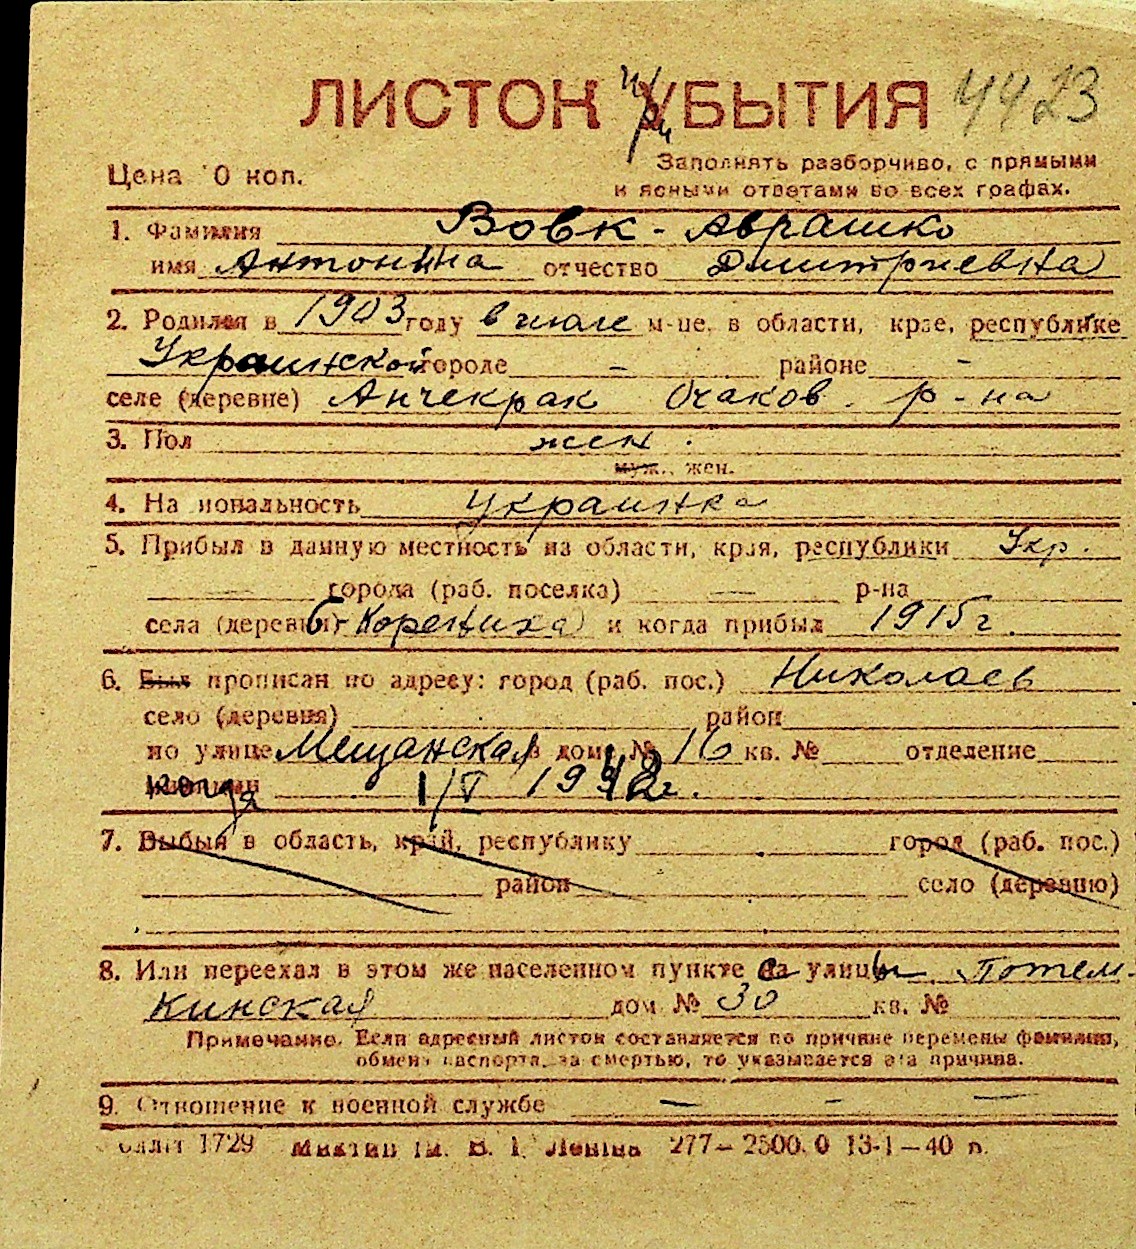 ЛИСТОК УБЫТИЯ 4423
При
Цена 10 коп.
Заполнять разборчиво, с прямыми
и ясными ответами во всех графах.
1. Фамилия Вовк - Аврашко
имя Антонина отчество Дмитриевна
2. Родился в 1903 году в июле м-це, в области, крае, республике
Украинской городе - районе -
селе (деревне) Анчекрак Очаков. р-на
3. Пол жен.
муж., жен.
4. Национальность украинка
5. Прибыл в данную местность из области, края, республики Укр.
города (раб. поселка) — р-на
села (деревни) Корениха и когда прибыл 1915 г.
6. Был прописан по адресу: город (раб. пос.) Николаев
село (деревня) район
по улице Мещанская в доме № 16 кв. № отделение
когда 1/V 1942 г.
7. Выбыл в область, край, республику город (раб. пос.)
район село (деревню)
8. Или переехал в этом же населенном пункте с улицы Потем-
кинская дом № 30 кв. №
Примечание. Если адресный листок составляется по причине перемены фамилии,
обмена паспорта, за смертью, то указывается эта причина.
9. Отношение к военной службе — - —
1729 Миктип ім. В. І. Леніна 277—2500.0 13-1—40 п.